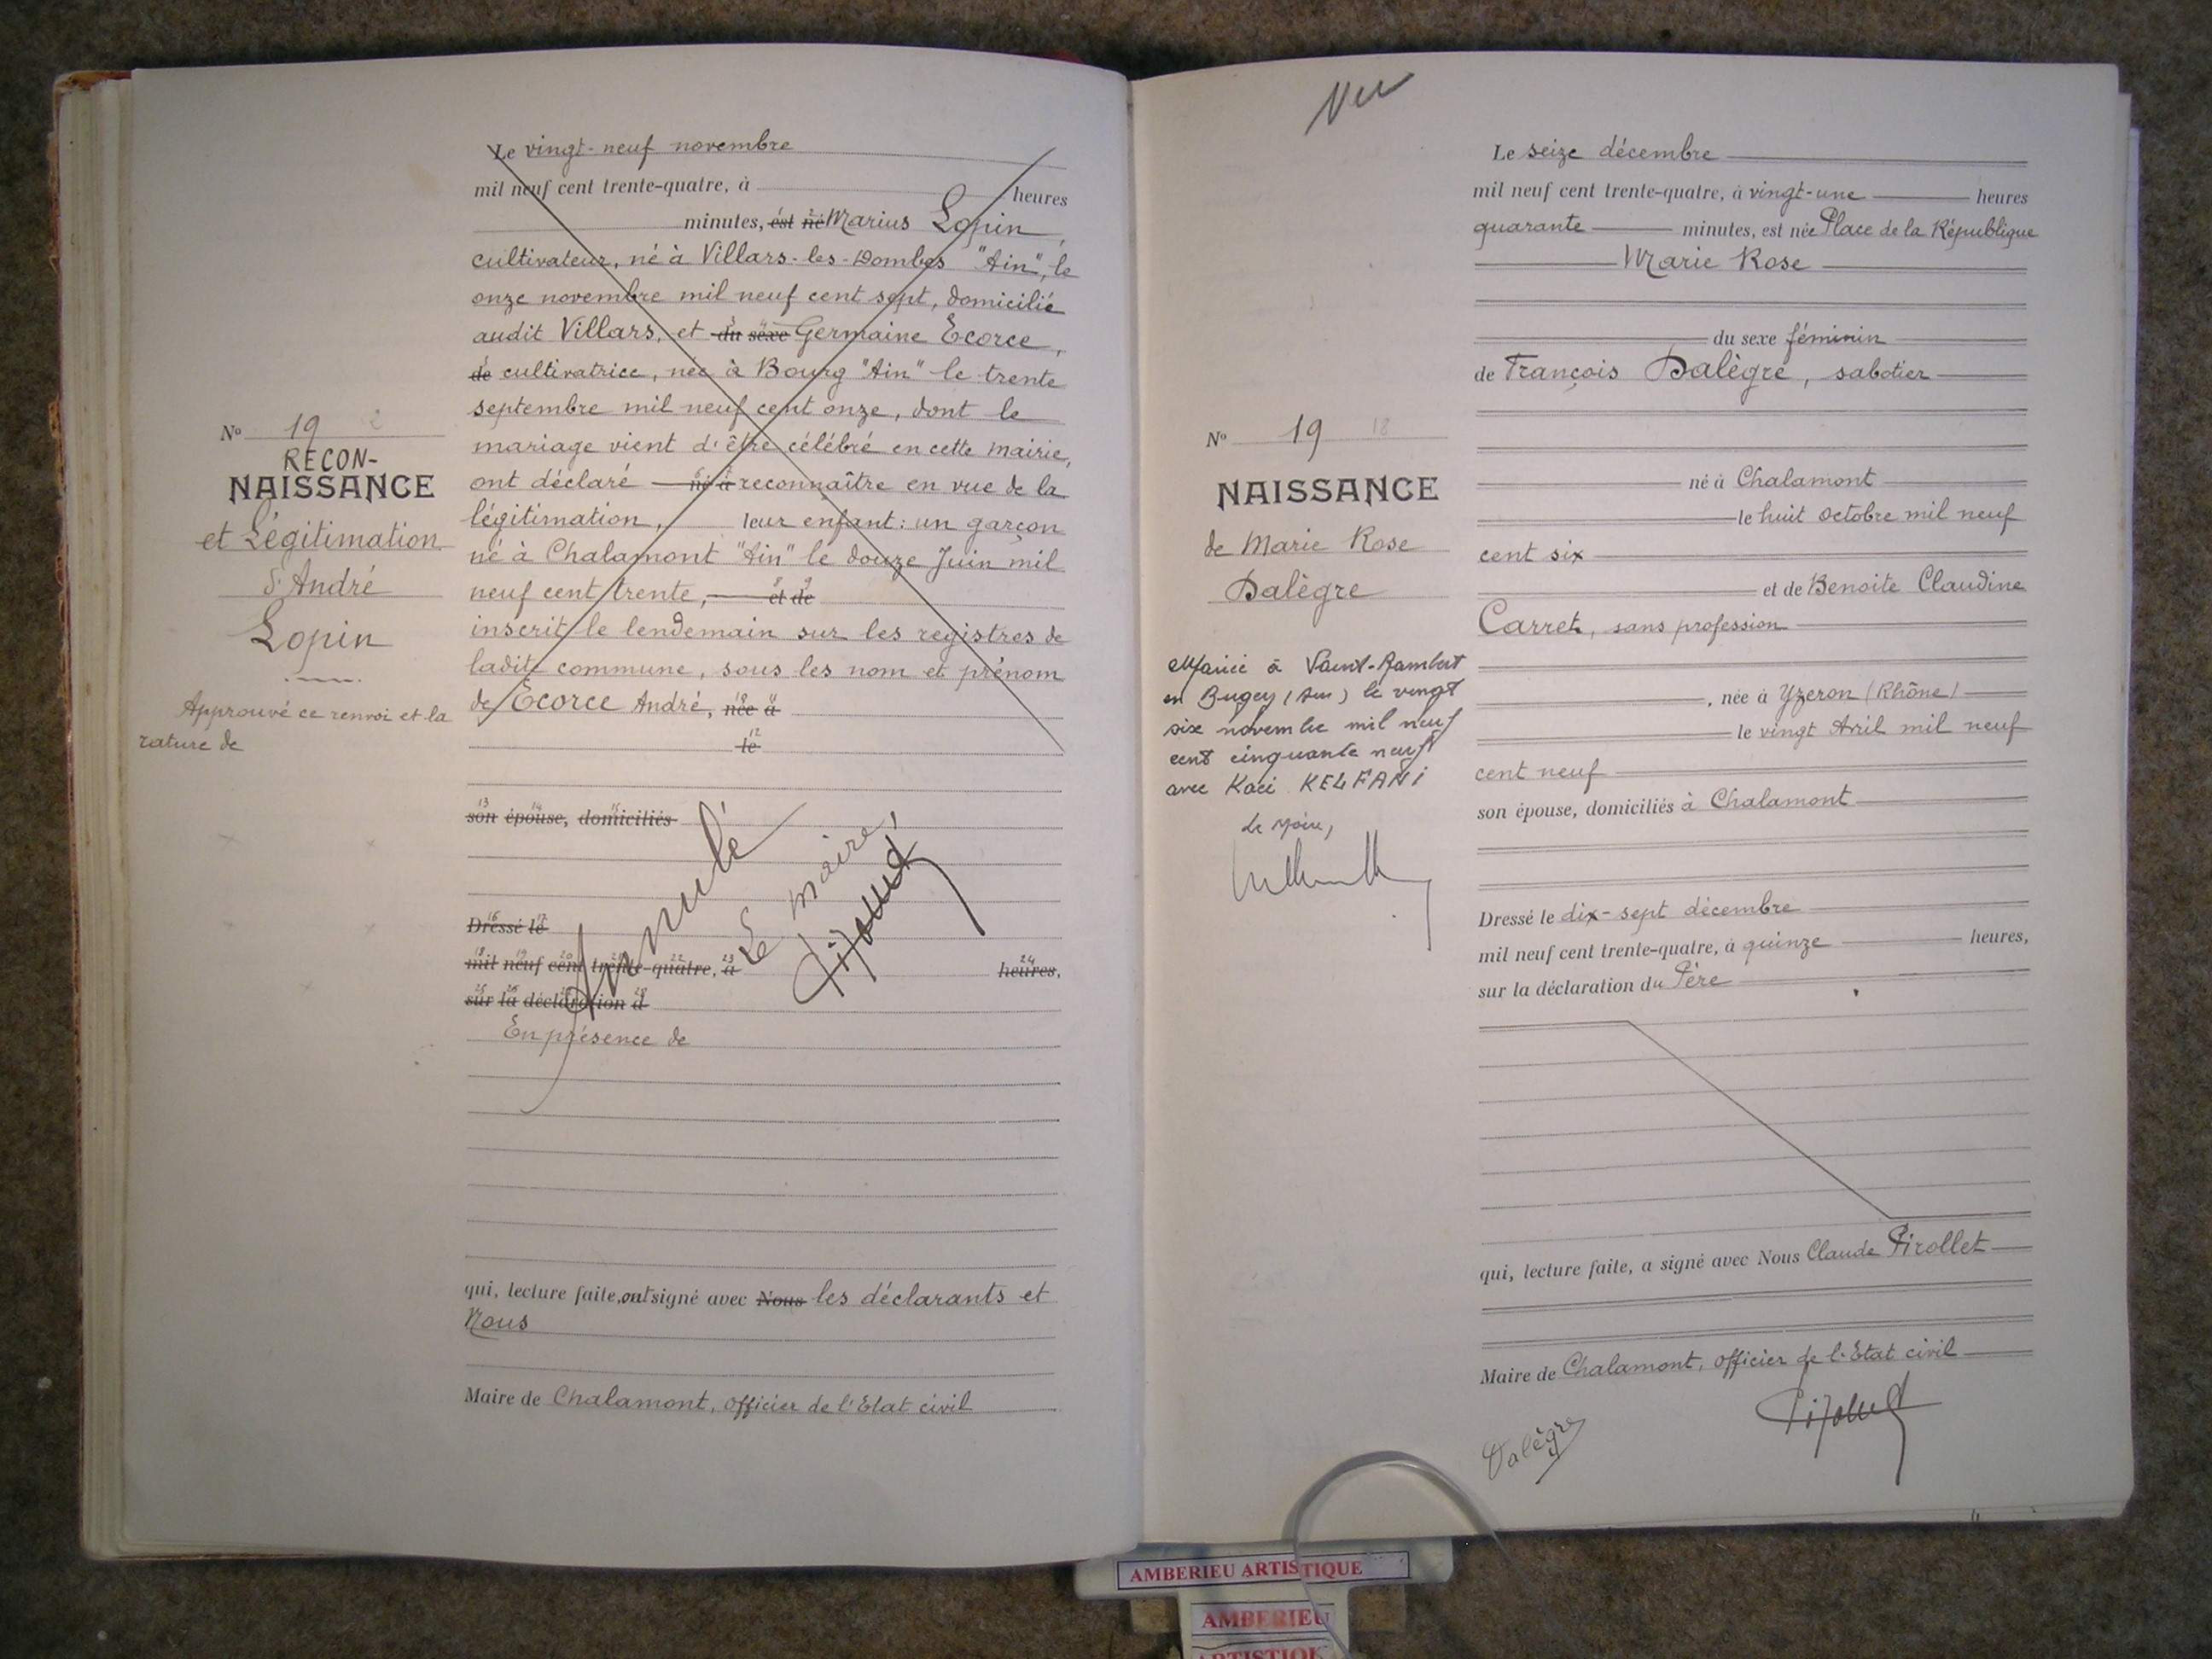 Le vingt-neuf novembre
mil neuf cent trente-quatre, à heures
minutes, est né Marius Lopin,
cultivateur, né à Villars-les-Dombes "Ain", le
onze novembre mil neuf cent sept, domicilié
audit Villars, et du sexe Germaine Ecorce,
de cultivatrice, née à Bourg "Ain" le trente
septembre mil neuf cent onze, dont le
mariage vient d'être célébré en cette mairie,
ont déclaré né à reconnaître en vue de la
légitimation, leur enfant: un garçon
né à Chalamont "Ain" le douze Juin mil
neuf cent trente, et de
inscrit le lendemain sur les registres de
ladite commune, sous les nom et prénom
de Ecorce André, née à
le
son épouse, domiciliés
Dressé le
mil neuf cent trente-quatre, à heures,
sur la déclaration d
En présence de
Annulé
Le maire,
qui, lecture faite, ont signé avec Nous les déclarants et
Nous
Maire de Chalamont, officier de l'Etat civil
No 19 2
RECON-
NAISSANCE
et Légitimation
d'André
Lopin
Approuvé ce renvoi et la
rature de
Vu
Le seize décembre
mil neuf cent trente-quatre, à vingt-une heures
quarante minutes, est née Place de la République
Marie Rose
du sexe féminin
de François Dalègre, sabotier
né à Chalamont
le huit octobre mil neuf
cent six
et de Benoite Claudine
Carret, sans profession
, née à Yzeron (Rhône)
le vingt Avril mil neuf
cent neuf
son épouse, domiciliés à Chalamont
Dressé le dix-sept décembre
mil neuf cent trente-quatre, à quinze heures,
sur la déclaration du Père
qui, lecture faite, a signé avec Nous Claude Pirollet
Maire de Chalamont, officier de l'Etat civil
Dalègre
No 19 18
NAISSANCE
de Marie Rose
Dalègre
Mariée à Saint-Rambert
en Bugey (Ain) le vingt
six novembre mil neuf
cent cinquante neuf
avec Kaci KELFANI
Le Maire,
AMBERIEU ARTISTIQUE
AMBERIEU
ARTISTIQ